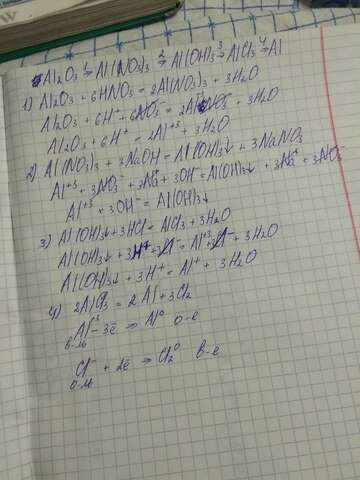 Al₂O₃ →¹ Al(NO₃)₃ →² Al(OH)₃ →³ AlCl₃ →⁴ Al
1) Al₂O₃ + 6HNO₃ = 2Al(NO₃)₃ + 3H₂O
Al₂O₃ + 6H⁺ + 6NO₃⁻ = 2Al⁺³ NO₃⁻ + 3H₂O
Al₂O₃ + 6H⁺ = 2Al⁺³ + 3H₂O
2) Al(NO₃)₃ + 3NaOH = Al(OH)₃↓ + 3NaNO₃
Al⁺³ + 3NO₃⁻ + 3Na⁺ + 3OH⁻ = Al(OH)₃↓ + 3Na⁺ + 3NO₃⁻
Al⁺³ + 3OH⁻ = Al(OH)₃↓
3) Al(OH)₃↓ + 3HCl = AlCl₃ + 3H₂O
Al(OH)₃↓ + 3H⁺ + 3Cl⁻ = Al⁺³ + 3Cl⁻ + 3H₂O
Al(OH)₃↓ + 3H⁺ = Al⁺ + 3H₂O
4) 2AlCl₃ = 2Al + 3Cl₂
Al⁺³ - 3ē ⇒ Al⁰ о-е
в-ль
Cl⁻ + 2ē ⇒ Cl₂⁰ в-е
о-ль